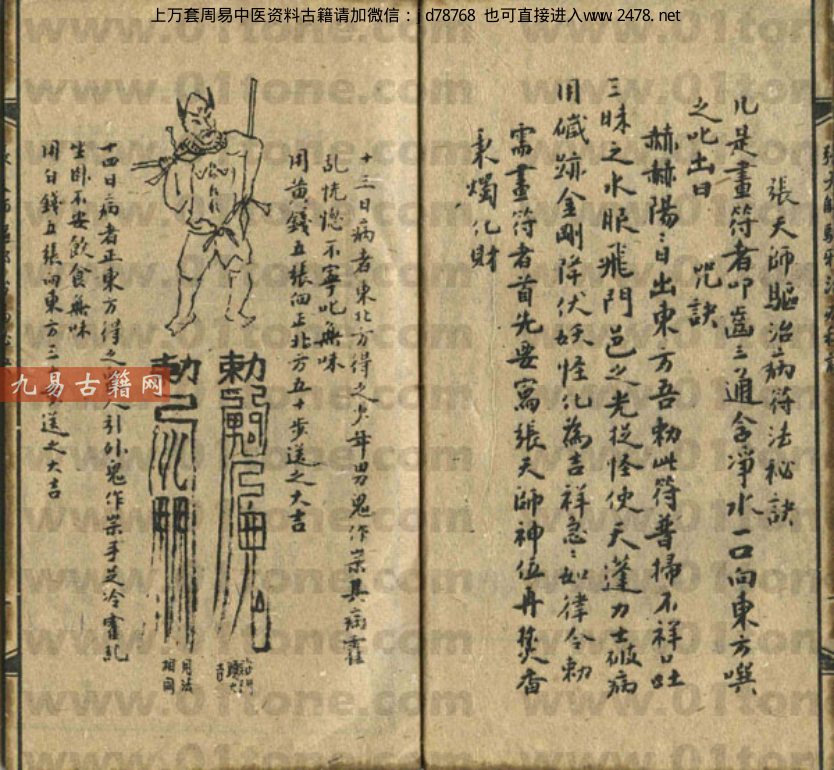 上万套周易中医资料古籍请加微信： d78768 也可直接进入www.2478.net
張天師驅治病符法秘訣
凡是畫符者叩齒三通含淨水一口向東方噀
之叱出曰 咒訣
赫赫陽陽日出東方吾勅此符普掃不祥口吐
三昧之水眼飛門邑之光捉怪使天蓬力士破病
用鎮跡金剛降伏妖怪化為吉祥急急如律令勅
需畫符者首先要寫張天師神位再焚香
秉燭化財
十三日病者東北方得之少年男鬼作祟其病
亂恍惚不寧吃無味
用黃錢五張向正北方五十步送之大吉
勅
勅
用法
相同
十四日病者正東方得之 人引外鬼作祟手足冷 亂
坐卧不安飲食無味
用白錢五張向東方三 送之大吉
九易古籍网
www.01tone.com